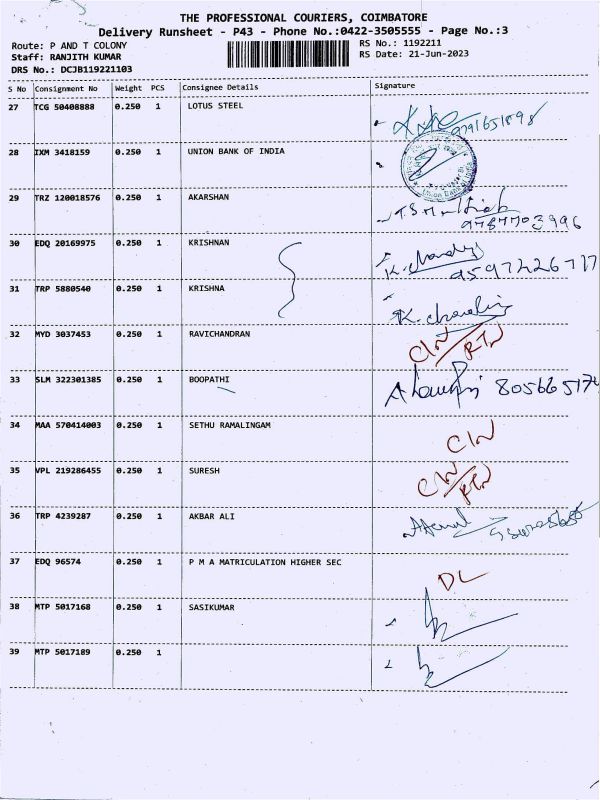 THE PROFESSIONAL COURIERS, COIMBATORE
Delivery Runsheet - P43 - Phone No.:0422-3505555 - Page No.:3
Route: P AND T COLONY
RS No.: 1192211
Staff: RANJITH KUMAR
RS Date: 21-Jun-2023
DRS No.: DCJB119221103
S No Consignment No Weight PCS Consignee Details Signature
27 TCG 50408888 0.250 1 LOTUS STEEL
9791651898
28 IXM 3418159 0.250 1 UNION BANK OF INDIA
29 TRZ 120018576 0.250 1 AKARSHAN
9787703996
30 EDQ 20169975 0.250 1 KRISHNAN
K.
31 TRP 5880540 0.250 1 KRISHNA
K.
32 MYD 3037453 0.250 1 RAVICHANDRAN
33 SLM 322301385 0.250 1 BOOPATHI
34 MAA 570414003 0.250 1 SETHU RAMALINGAM
35 VPL 219286455 0.250 1 SURESH
36 TRP 4239287 0.250 1 AKBAR ALI
37 EDQ 96574 0.250 1 P M A MATRICULATION HIGHER SEC
DL
38 MTP 5017168 0.250 1 SASIKUMAR
39 MTP 5017189 0.250 1